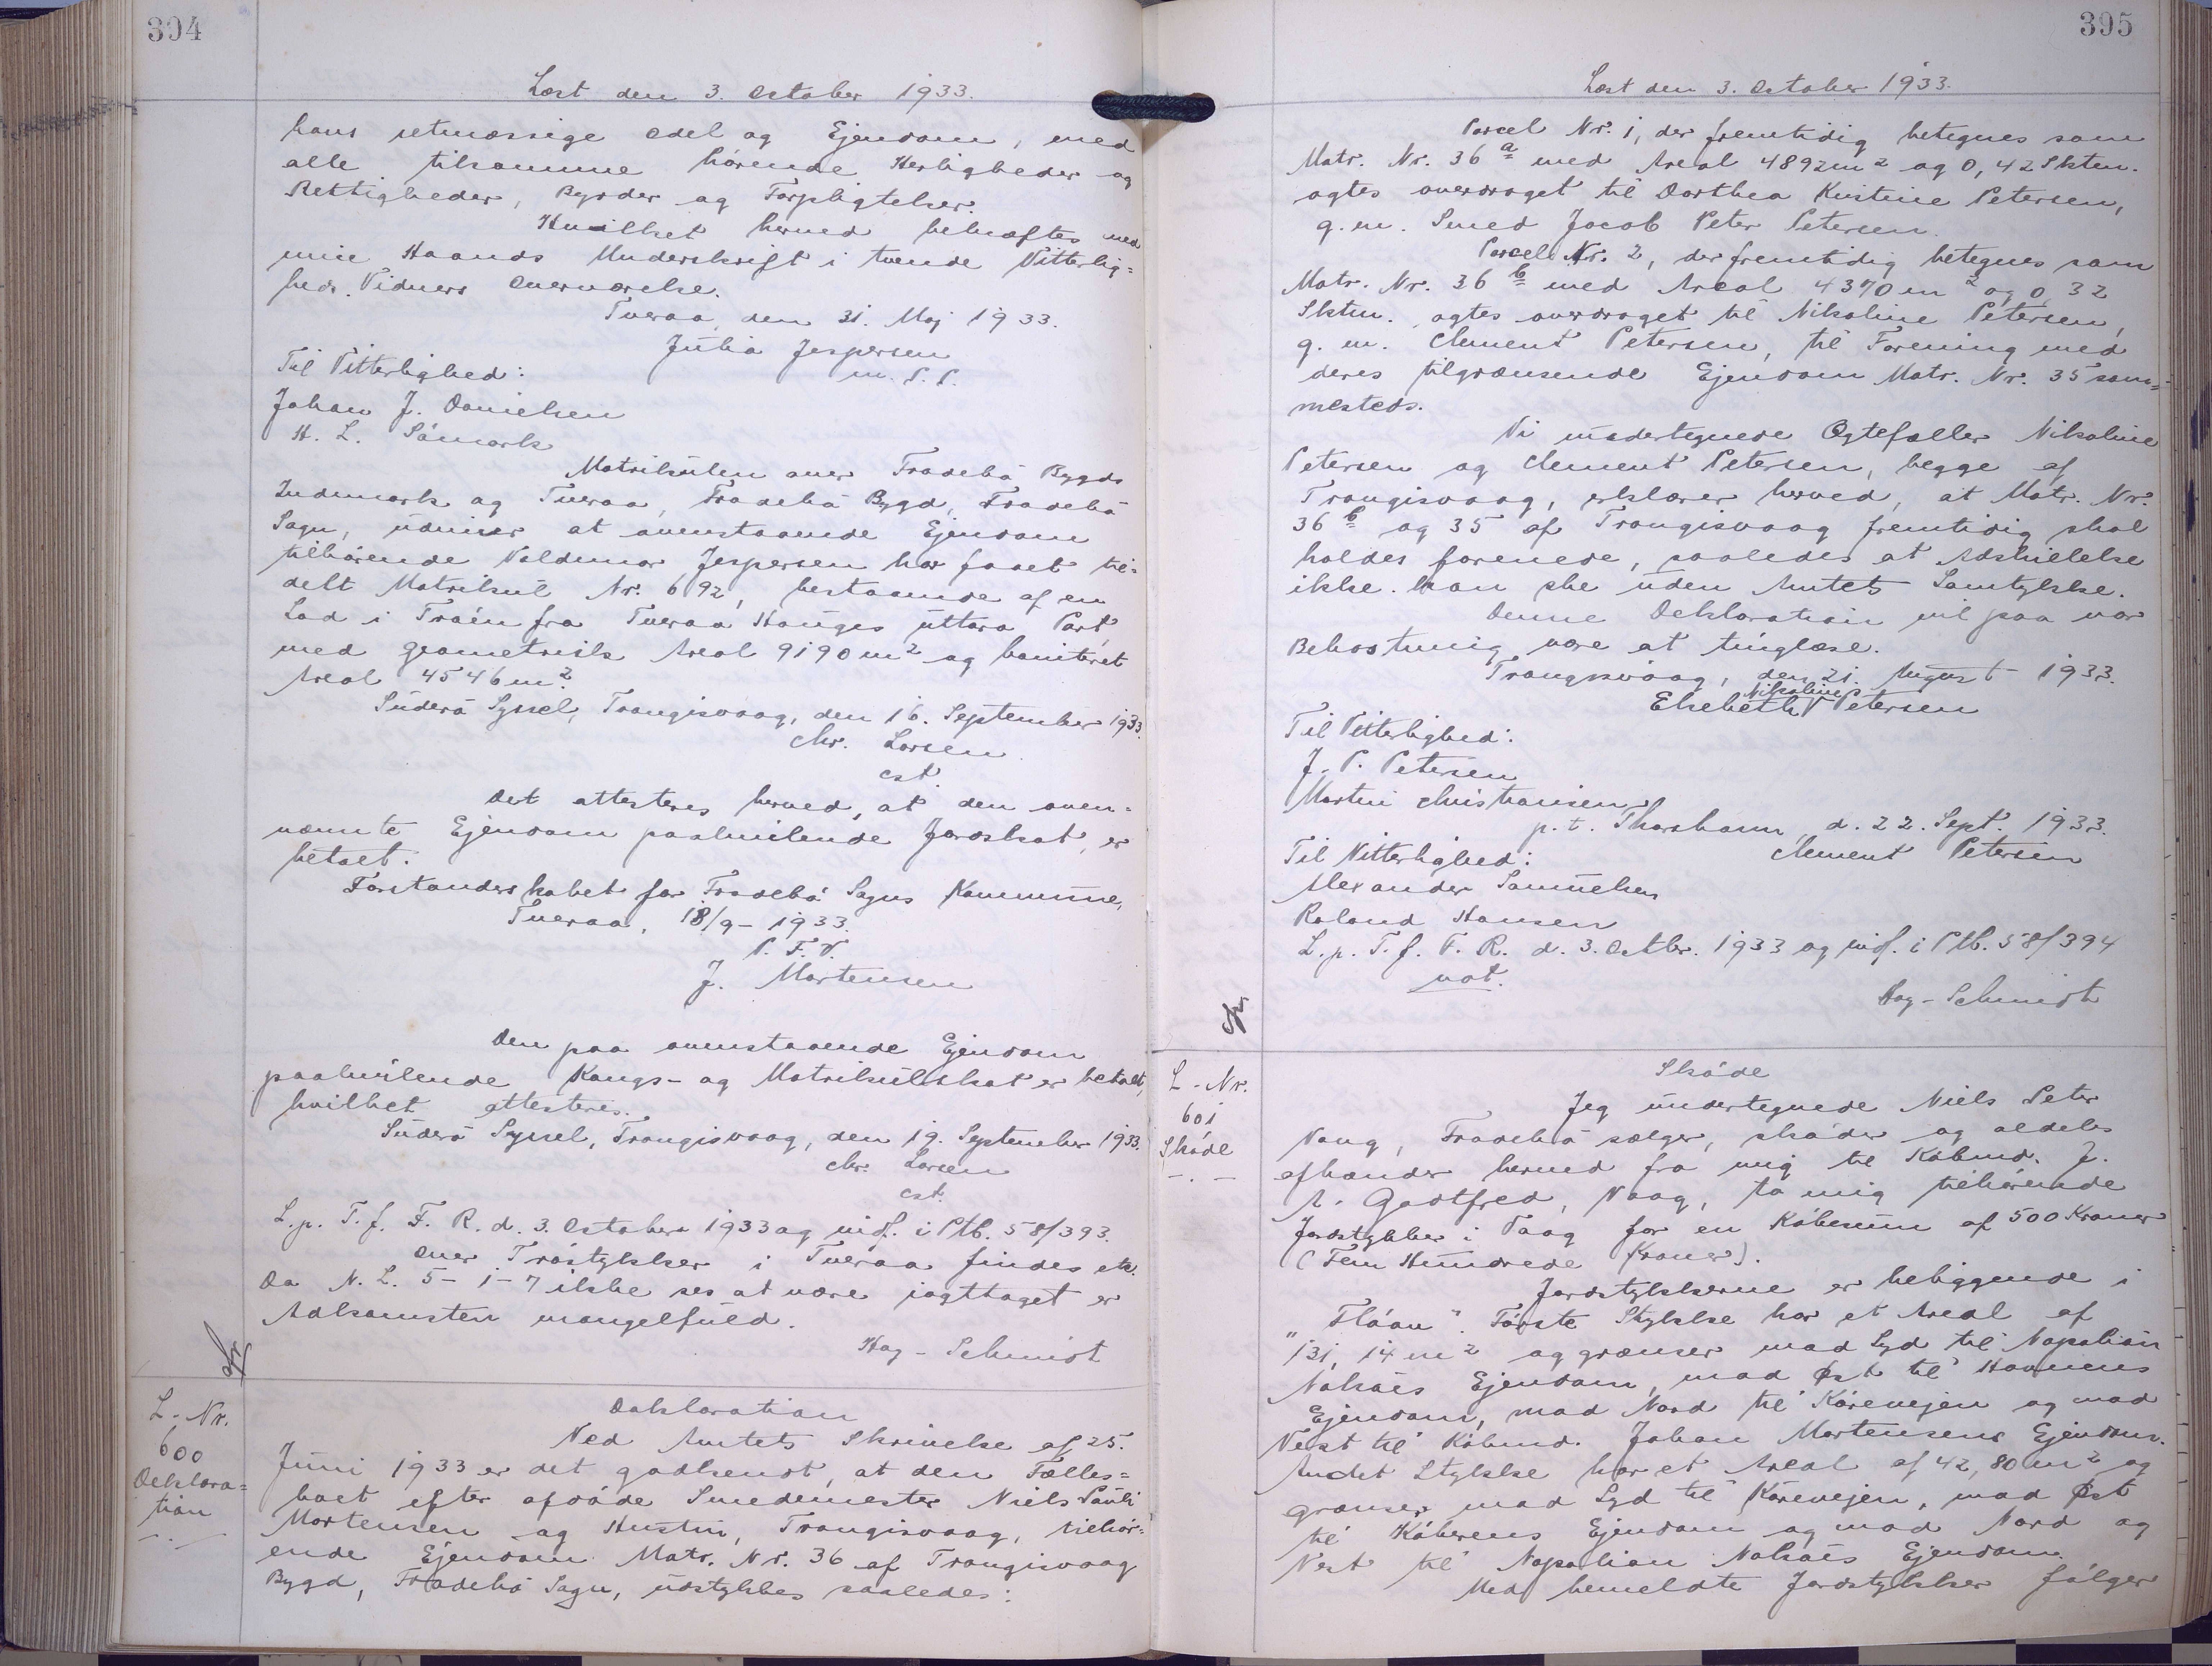 394
Læst den 3. October 1933.
hans retmæssige Odel og Ejendom, med
alle tilsamme hørende Herligheder og
Rettigheder, Byrder og Forpligtelser.
Hvilket herved bekræftes med
min Haands Underskrift i tvende Vitterlig=
heds Vidners Overværelse.
Tveraa, den 31. Maj 1933.
Julia Jespersen
m. P. P.
Til Vitterlighed:
Johan J. Danielsen
H. L. Sámark
Matrikulen over Frodebø Bygds
Indmark og Tveraa, Frodebø Bygd, Frodebø
Sogn, udviser at ovenstaaende Ejendom
tilhørende Valdemar Jespersen har faaet til=
delt Matrikul Nr. 692, bestaaende af en
Lod i Tróin fra Tveraa Hauges uttara Part
med geometrisk Areal 9190 m² og boniteret
Areal 4546 m².
Suderø Syssel, Trangisvaag, den 16. September 1933.
Chr. Larsen
cst.
Det attesteres herved, at den oven=
nævnte Ejendom paahvilende Jordskat, er
betalt.
Forstanderskabet for Frodebø Sogns Kommune,
Tveraa, 18/9 - 1933.
P. F. V.
J. Mortensen
Den paa ovenstaaende Ejendom
paahvilende Kongs- og Matrikulskat er betalt,
hvilket attesteres.
Suderø Syssel, Trangisvaag, den 19. September 1933.
Chr. Larsen
cst.
L. p. T. f. F. R. d. 3. October 1933 og indf. i Ptb. 58/393.
Over Trøstykker i Tveraa findes etc.
Da N. L. 5-1-7 ikke ses at være iagttaget er
Adkomsten mangelfuld.
Hag-Schmidt
L-Nr.
600
Deklara=
tion
Deklaration
Ved Amtets Skrivelse af 25.
Juni 1933 er det godkendt, at den Fælles=
boet efter afdøde Smedemester Niels Pauli
Mortensen og Hustru, Trangisvaag, tilhør=
ende Ejendom Matr. Nr. 36 af Trangisvaag
Bygd, Frodebø Sogn, udstykkes saaledes:
395
Læst den 3. October 1933.
Parcel Nr. 1, der fremtidig betegnes som
Matr. Nr. 36 a med Areal 4892 m² og 0,42 Sktm.
agtes overdraget til Dorthea Kristine Petersen,
g. m. Smed Jacob Peter Petersen.
Parcel Nr. 2, der fremtidig betegnes som
Matr. Nr. 36 b med Areal 4370 m² og 0,32
Sktm. agtes overdraget til Nikoline Petersen,
g. m. Clement Petersen, til Forening med
deres tilgrænsende Ejendom Matr. Nr. 35 sam=
mesteds.
Vi undertegnede Ægtefæller Nikoline
Petersen og Clement Petersen, begge af
Trangisvaag, erklærer herved, at Matr. Nr.
36 b og 35 af Trangisvaag fremtidig skal
holdes forenede, saaledes at Adskillelse
ikke kan ske uden Amtets Samtykke.
Denne Deklaration vil paa vor
Bekostning være at tinglæse.
Trangisvaag, den 21. August 1933.
Nikoline
Elsebeth V Petersen
Til Vitterlighed:
J. P. Petersen
Martin Christiansen
p. t. Thorshavn, d. 22. Sept. 1933.
Clement Petersen
Til Vitterlighed:
Alexander Samuelsen
Roland Hansen
L. p. T. f. F. R. d. 3. Octbr. 1933 og indf. i Ptb. 58/394
not.
Hag-Schmidt
L-Nr.
601
Skøde
Skøde
Jeg undertegnede Niels Peter
Vang, Frodebø sælger, skøder og aldeles
afhænder herved fra mig til Købmd. J.
A. Godtfred, Vaag, to mig tilhørende
Jordstykker i Vaag for en Købesum af 500 Kroner
(Fem Hundrede Kroner).
Jordstykkerne er beliggende i
"Fløan". Første Stykke har et Areal af
131,14 m² og grænser mod Syd til Napolion
Nolsøes Ejendom, mod Øst til Havnens
Ejendom, mod Nord til Kørevejen og mod
Vest til Købmd. Johan Mortensens Ejendom.
Andet Stykke har et Areal af 42,80 m² og
grænser mod Syd til Kørevejen, mod Øst
til Køberens Ejendom og mod Nord og
Vest til Napolion Nolsøes Ejendom.
Med bemeldte Jordstykker følger